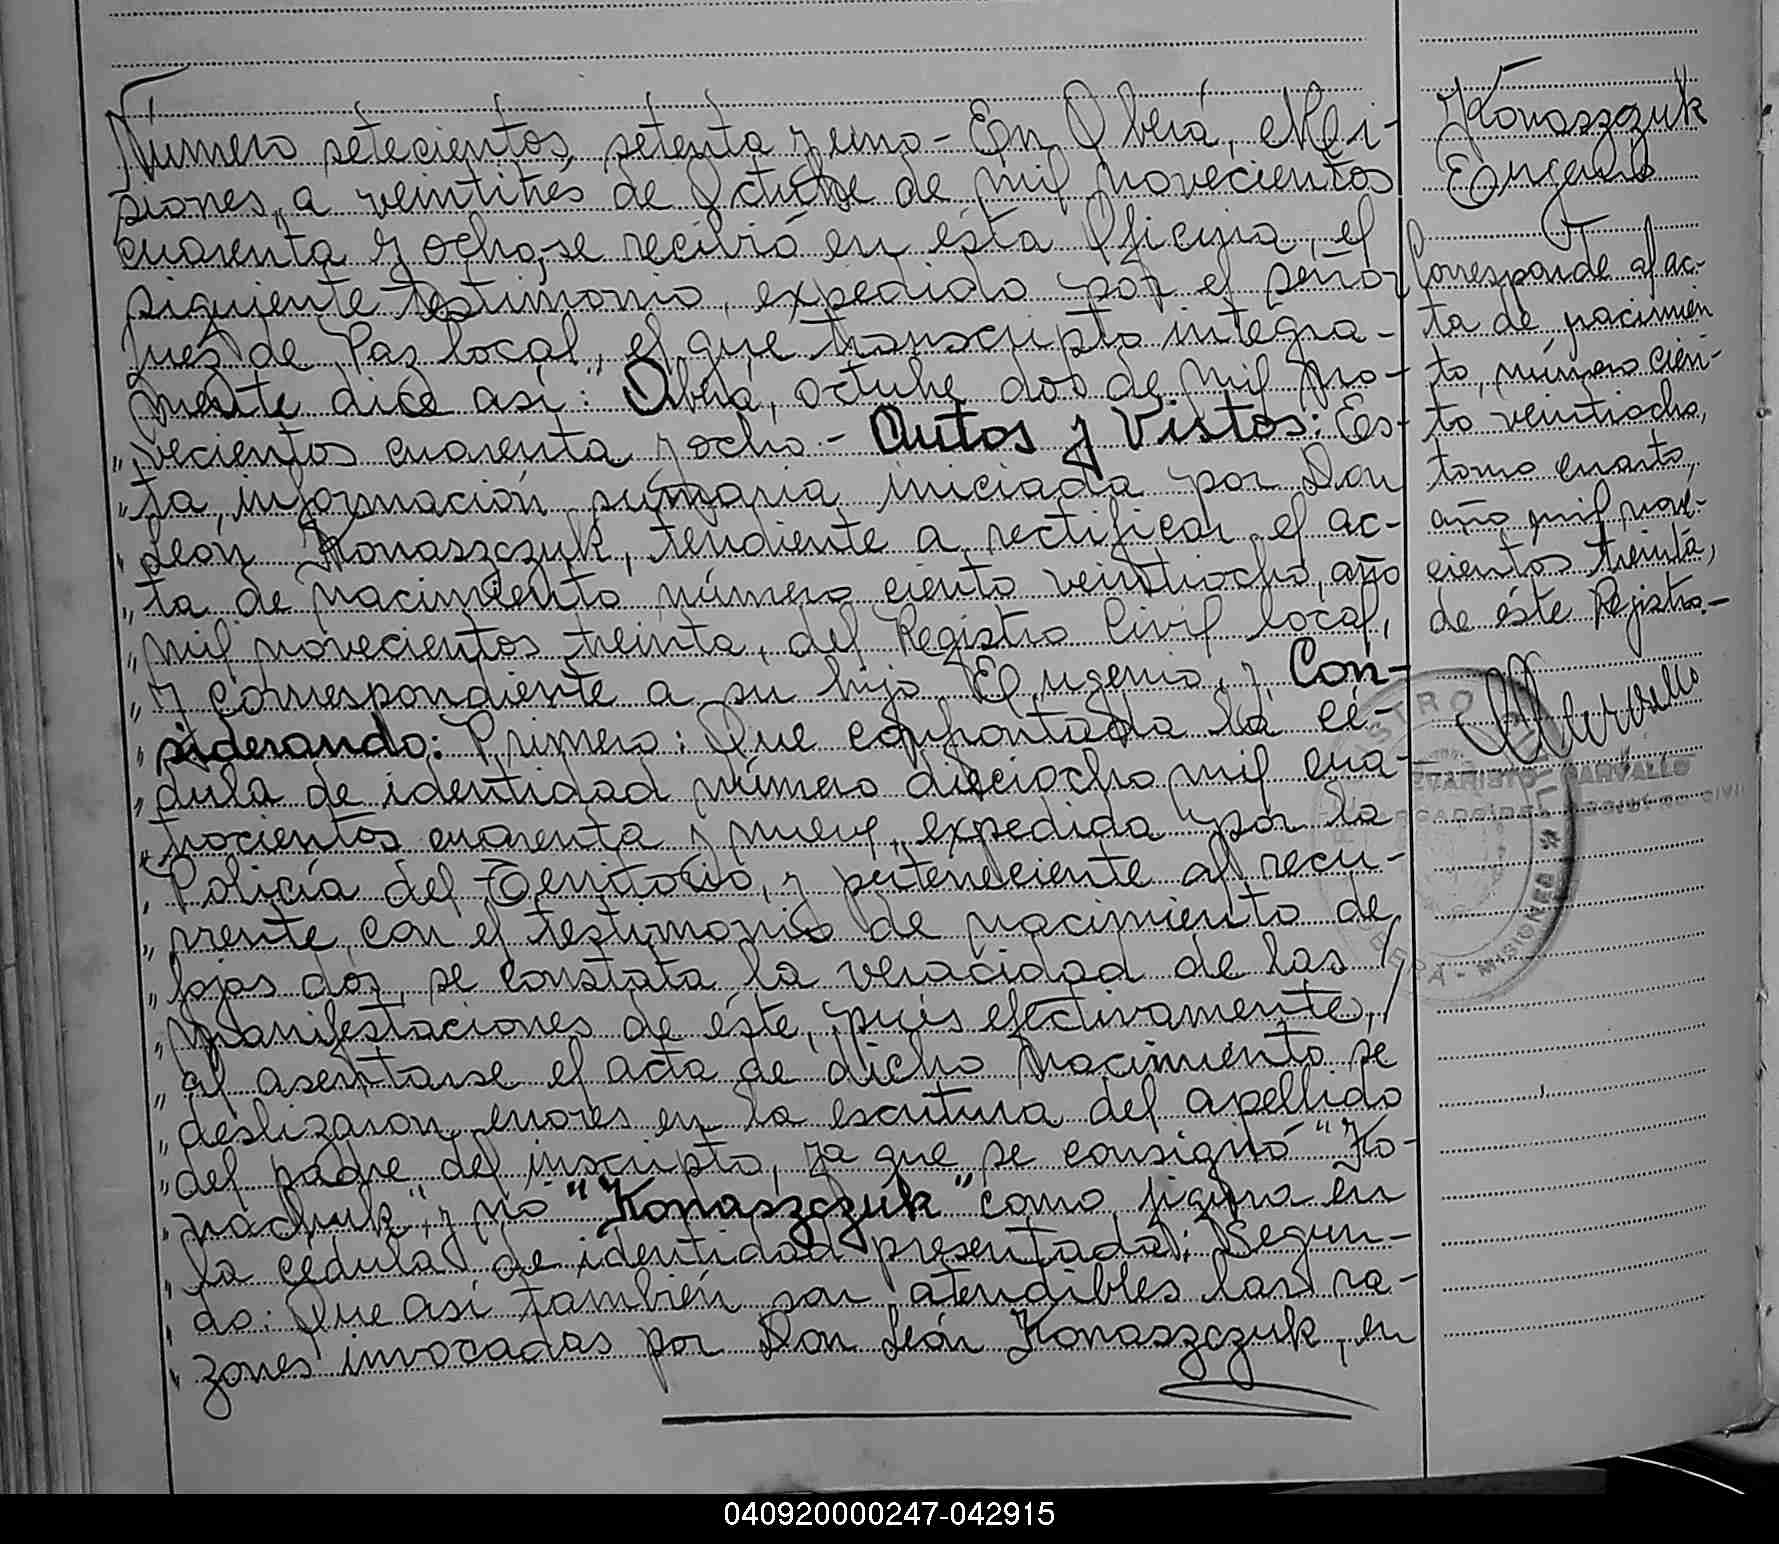 Número setecientos setenta y uno - En Oberá, Mi-
siones, a veintitrés de Octubre de mil novecientos
cuarenta y ocho, se recibió en ésta Oficina, el
siguiente testimonio, expedido por el señor
Juez de Paz local, el que transcripto integra-
mente dice así: "Oberá, octubre dos de mil no-
" vecientos cuarenta y ocho - Autos y Vistos: Es-
" ta, información sumaria iniciada por Don
" León Konaszczuk, tendiente a rectificar el ac-
" ta de nacimiento número ciento veintiocho, año
" mil novecientos treinta, del Registro Civil local,
" y correspondiente a su hijo Eugenio, y, Con-
" siderando: Primero: Que confrontada la cé-
" dula de identidad número dieciocho mil cua-
" trocientos cuarenta y nueve, expedida por la
" Policía del Territorio, y perteneciente al recu-
" rrente, con el testimonio de nacimiento de
" fojas dos, se constata la veracidad de las /
" manifestaciones de éste, pués efectivamente, /
" al asentarse el acta de dicho nacimiento se
" deslizaron errores en la escritura del apellido
" del padre del inscripto, ya que se consignó "Ko-
" nachuk", y no "Konaszczuk" como figura en
" la cédula de identidad presentada; Segun-
" do: Que así también son atendibles las ra-
" zones invocadas por Don León Konaszczuk, en
Konaszczuk
Eugenio
Corresponde al ac-
ta de nacimien
to, número cien-
to veintiocho,
tomo cuarto,
año mil nove-
cientos treinta,
de éste Registro.-
EVARISTO CARVALLO
REGISTRO CIVIL
OBERA - MISIONES
040920000247-042915